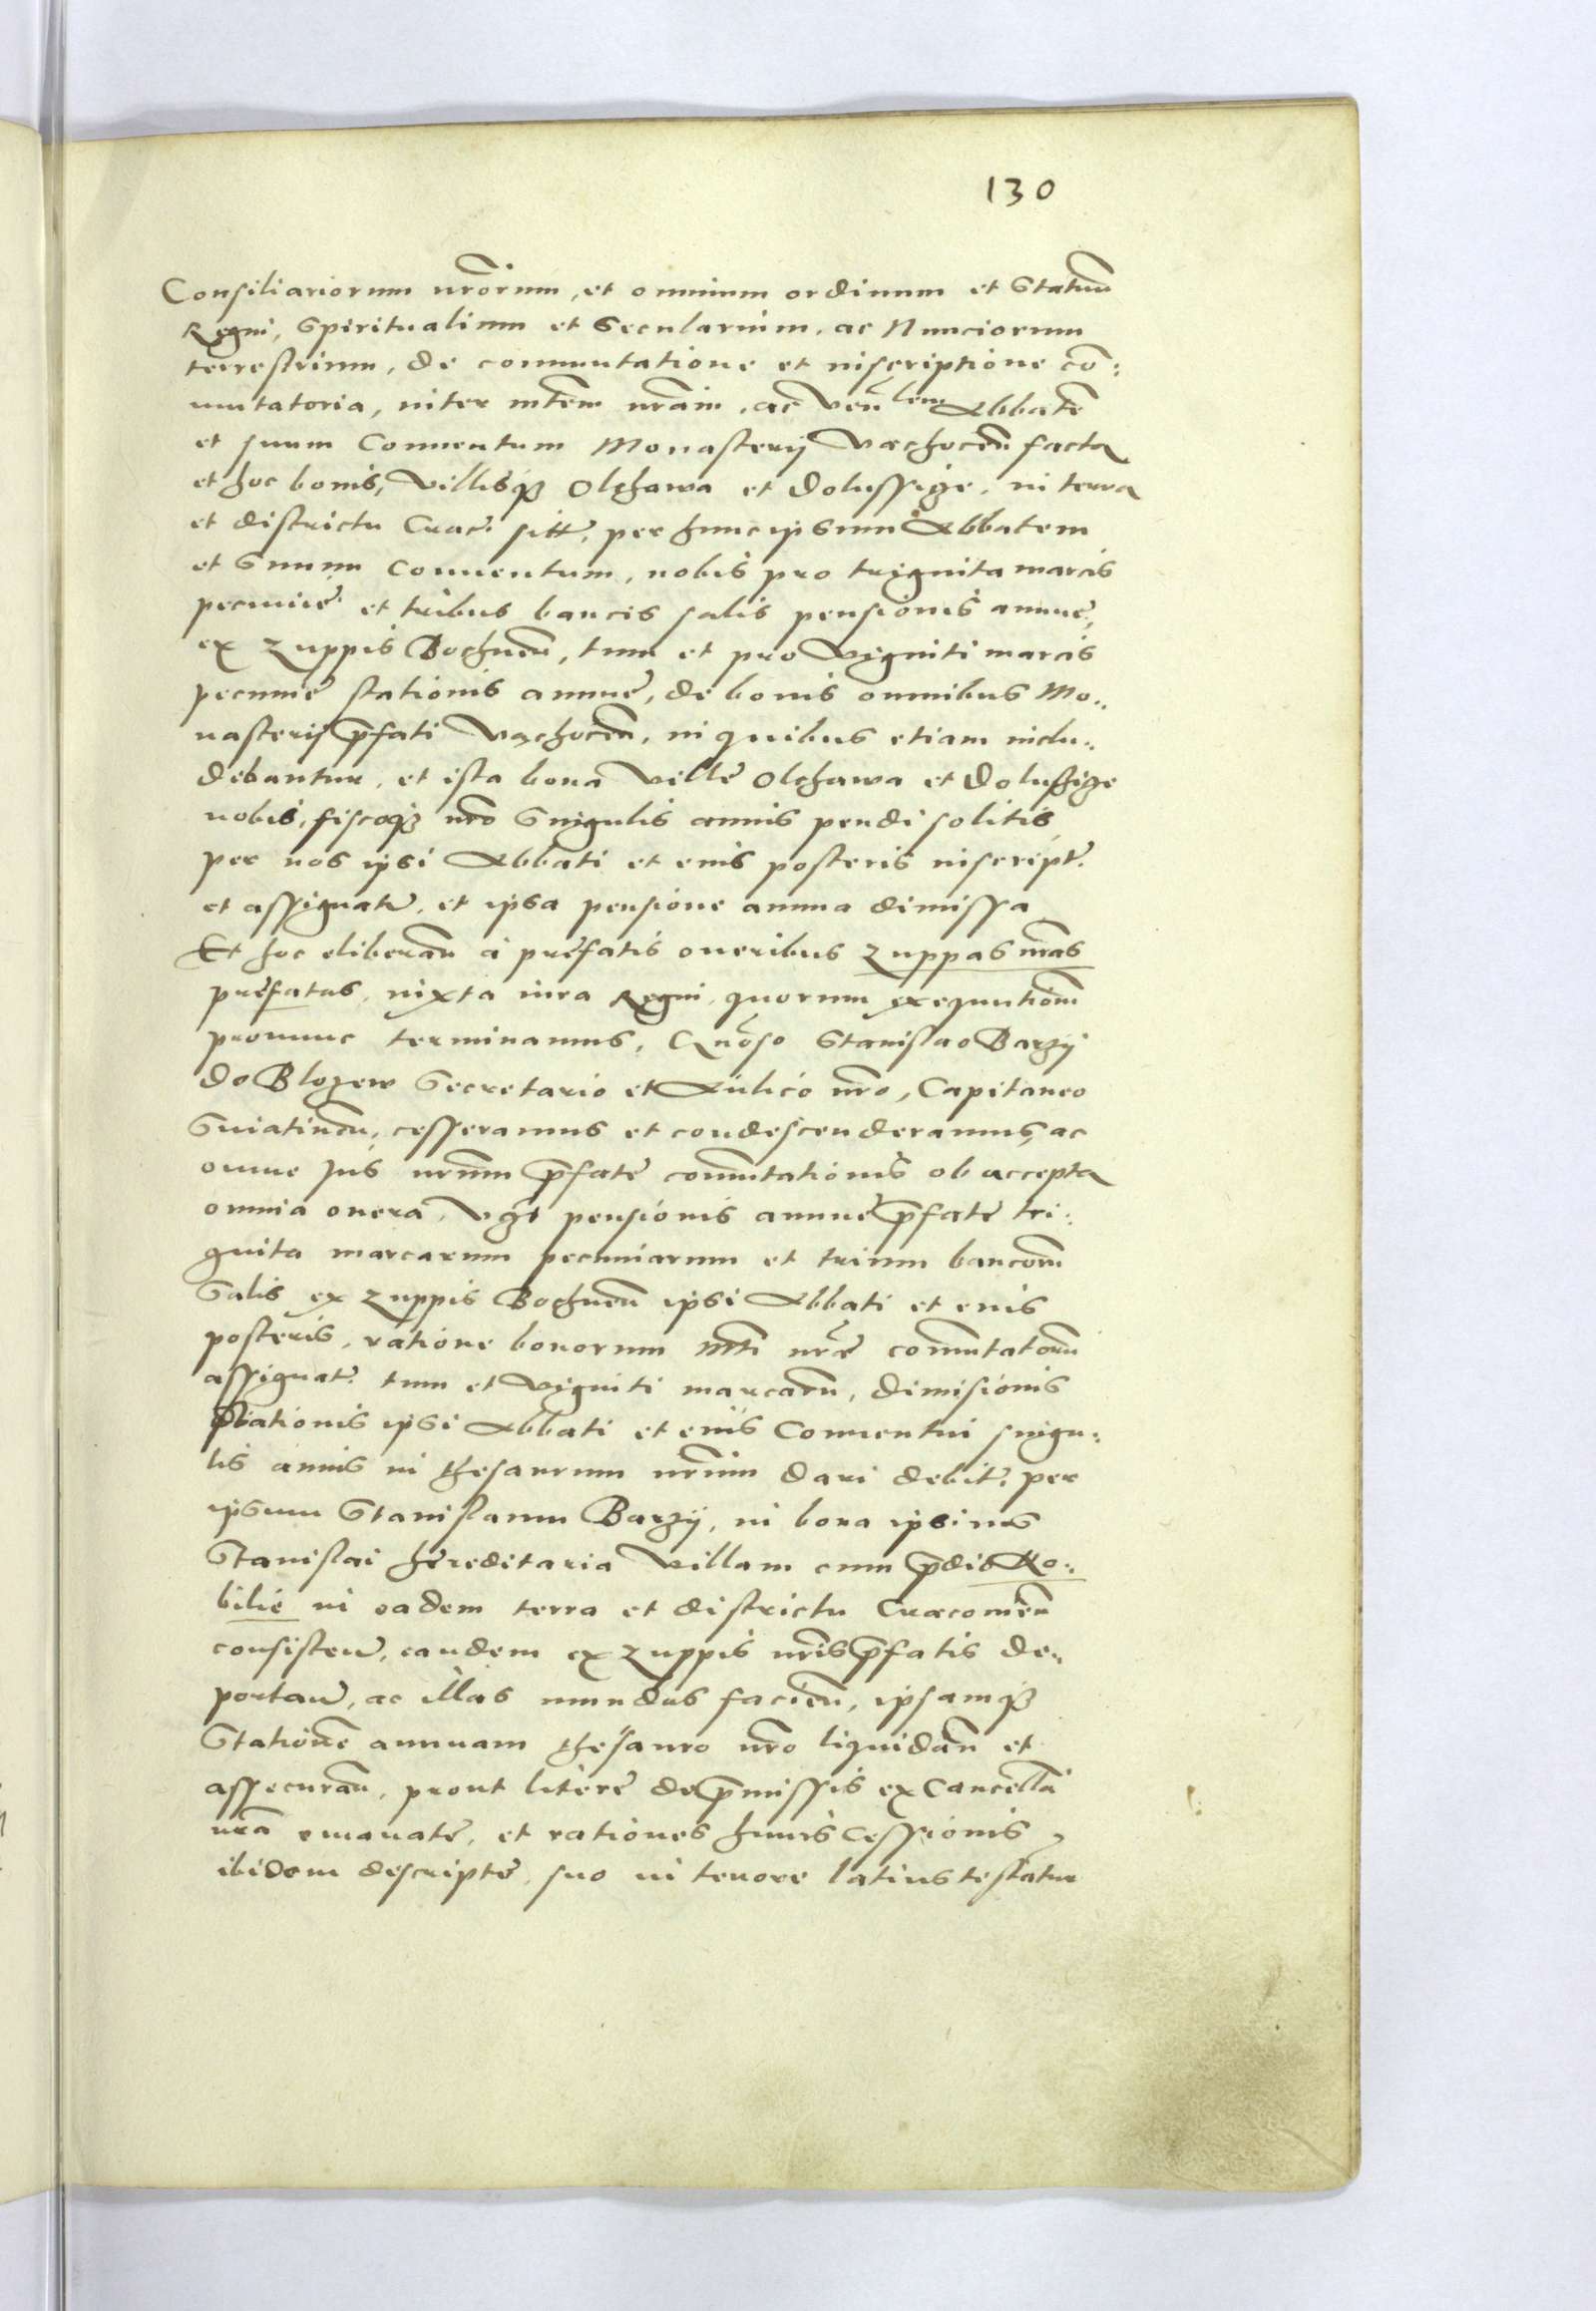 130
Consiliariorum nrõrum, et omnium ordinum et Statuũ
Regni, Spiritualium et Secularium, ac Nunciorum
terrestrium, de commutatione et inscriptione cõ:
mutatoria, inter mtẽm nrãm, ac Veñlem Abbatẽ
et suum Conuentum Monasterij Vachoceñ facta
et hoc bonis, Villisqȝ Olchawa et Dolussige, in terra
et districtu Crac. sitt. per hunc ipsum Abbatem
et Suum Conuentum, nobis pro triginta marcis
pecuniẹ et tribus bancis salis pensionis annuẹ,
ex Zuppis Bochneñ, tum et pro Viginti marcis
pecuniẹ stationis annuẹ, de bonis omnibus Mo„
nasterij p̃fati Vachoceñ, in quibus etiam inclu„
debantur, et ista bona Villẹ Olchawa et Dolussige
nobis, fiscoqȝ nrõ Singulis annis pendi solitis
per nos ipsi Abbati et eius posteris inscript.
et assignat. et ipsa pensione annua dimissa
Et hoc eliberañ à prẹfatis oneribus Zuppas nrãs
prẹfatas, iuxta iura Regni, quorum exequutionẽ
pronunc terminamus, Gñoso Stanislao Barzij
do Blozew Secretario et Aulico nrõ, Capitaneo
Sniatineñ, cesseramus et condescenderamus, ac
omne Jus nrũm p̃fatẹ commutationis ob accepta
omnia onera, Vgt pensionis annuẹ p̃fatẹ tri:
ginta marcarum pecuniarum et trium bancorũ
Salis ex Zuppis Bochneñ ipsi Abbati et eius
posteris, ratione bonorum Mtti nrẽ commutatorũ
assignat. tum et Viginti marcarũ, dimisionis
Stationis ipsi Abbati et eius Conuentui singu:
lis annis in thesaurum nrũm dari debit. per
ipsum Stanislaum Barzij, in bona ipsius
Stanislai hẹreditaria Villam cum p̃dio Ko:
bilie in eadem terra et districtu Cracouieñ
consisteñ, eandem ex Zuppis nrĩs p̃fatis de„
portañ, ac illas mundas facieñ, ipsamqȝ
Stationẽ annuam thesauro nrõ liquidañ et
assecurañ, prout literẹ de p̃missis ex Cancellã
nrã emanatẹ, et rationes huius Cessionis
ibidem descriptẹ, suo in tenore latius testatur